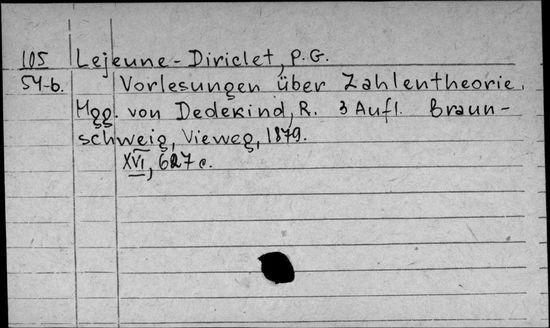 105 Lejeune-Diriclet, P.G.
54-b. Vorlesungen über Zahlentheorie.
Hgg. von Dedekind, R. 3 Aufl. Braun-
schweig, Vieweg, 1879.
XVI, 627 c.